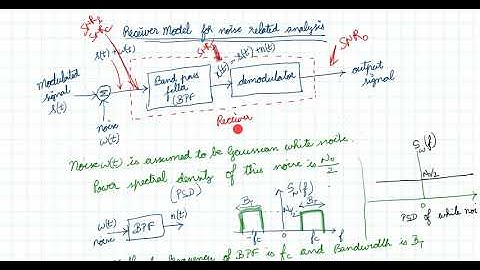 Receiver Model for noise related analysis
SNR_I
SNR_C
s(t)+w(t)
SNR_I
x(t) = s(t)+n(t)
SNR_O
Modulated signal s(t)
Σ
Band pass filter (BPF
demodulator
output signal
noise w(t)
Receiver
Noise w(t) is assumed to be Gaussian white noise.
Power spectral density of this noise is N₀/2
(PSD)
S_W(f)
N₀/2
0
f
PSD of white noi
w(t)
noise
BPF
n(t)
S_N(f)
B_T
N₀/2
B_T
fc
fc
f
frequency of BPF is fc and Bandwidth is B_T